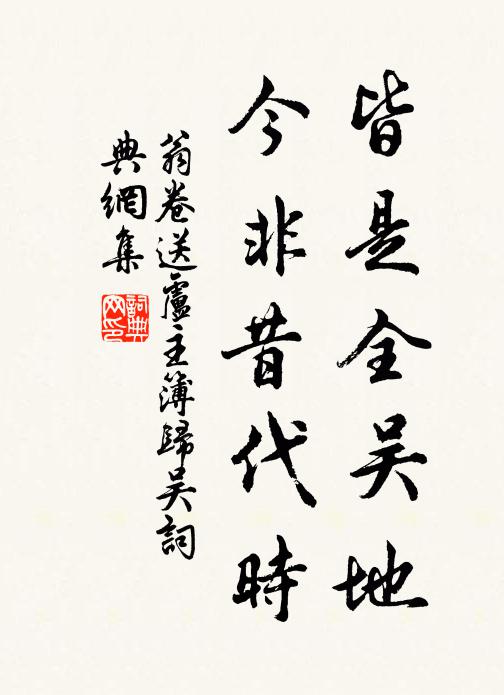 皆是全吴地
今非昔代時
翁卷送盧主簿歸吴詞
典網集
詞典网印